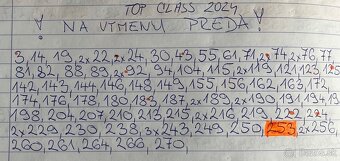 TOP CLASS 2024
! NA VÝMENU PREDA !
3, 14, 19, 2x22, 2x24, 30, 43, 55, 61, 71, 2x74, 2x76, 77
81, 82, 88, 89, 2x92, 94, 104, 115, 2x119, 121, 123, 125
142, 143, 144, 146, 148, 149, 155, 156, 162, 163, 172
174, 176, 178, 180, 183, 187, 2x189, 2x190, 191, 194, 19
198, 204, 207, 210, 213, 2x215, 216, 219, 222, 224,
2x229, 230, 238, 3x243, 249, 250, 253, 2x256,
260, 261, 264, 266, 270,